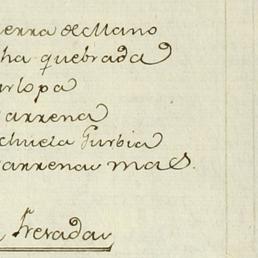 ierra de Mano
ha quebrada
urlopa
arrena
chuela Gurbia
arrena mas.
Frexadas